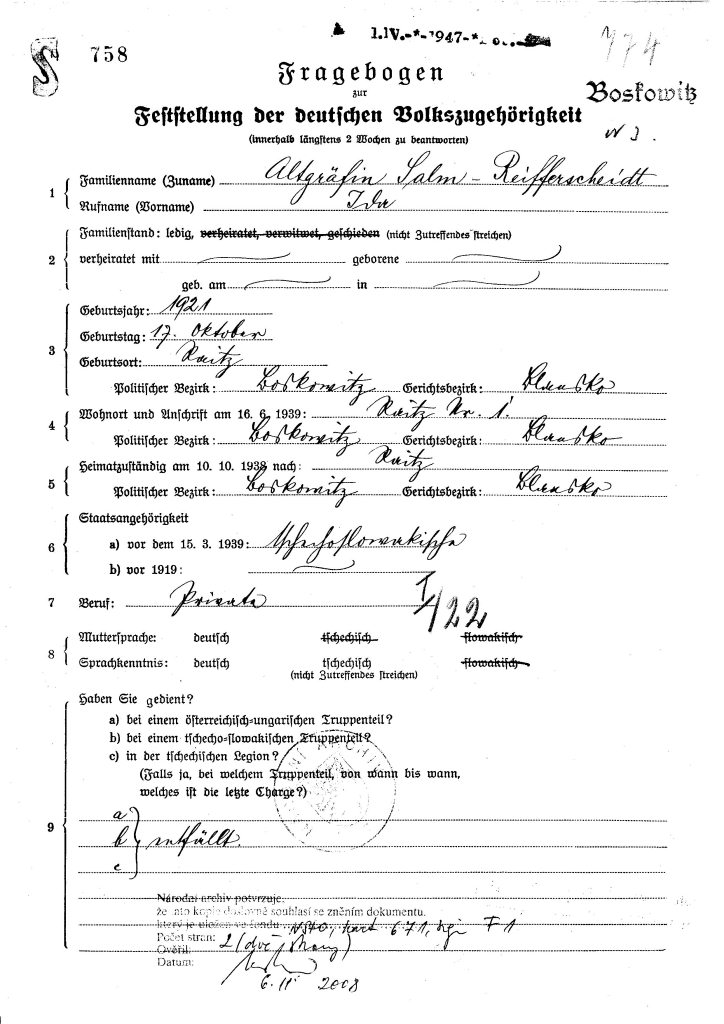 758
1.IV.-*-1947-*
774
Fragebogen
zur
Feststellung der deutschen Volkszugehörigkeit
Boskowitz
(innerhalb längstens 2 Wochen zu beantworten)
1 Familienname (Zuname) Altgräfin Salm - Reifferscheidt
Rufname (Vorname) Ida
2 Familienstand: ledig, verheiratet, verwitwet, geschieden (nicht Zutreffendes streichen)
verheiratet mit geborene
geb. am in
3 Geburtsjahr: 1921
Geburtstag: 17. Oktober
Geburtsort: Raitz
Politischer Bezirk: Boskowitz Gerichtsbezirk: Blansko
4 Wohnort und Anschrift am 16. 6. 1939: Raitz Nr. 1.
Politischer Bezirk: Boskowitz Gerichtsbezirk: Blansko
5 Heimatzuständig am 10. 10. 1938 nach: Raitz
Politischer Bezirk: Boskowitz Gerichtsbezirk: Blansko
6 Staatsangehörigkeit
a) vor dem 15. 3. 1939: tschechoslowakische
b) vor 1919:
7 Beruf: Private
I/122
8 Muttersprache: deutsch tschechisch slowakisch
Sprachkenntnis: deutsch tschechisch slowakisch
(nicht Zutreffendes streichen)
9 Haben Sie gedient?
a) bei einem österreichisch-ungarischen Truppenteil?
b) bei einem tschecho-slowakischen Truppenteil?
c) in der tschechischen Legion?
(Falls ja, bei welchem Truppenteil, von wann bis wann,
welches ist die letzte Charge?)
a
b entfällt.
c
Národní archiv potvrzuje,
že tato kopie doslovně souhlasí se zněním dokumentu,
který je uložen ve fondu kart 671, F 1
Počet stran: 2 (dvě strany)
Ověřil:
Datum:
6. II 2008